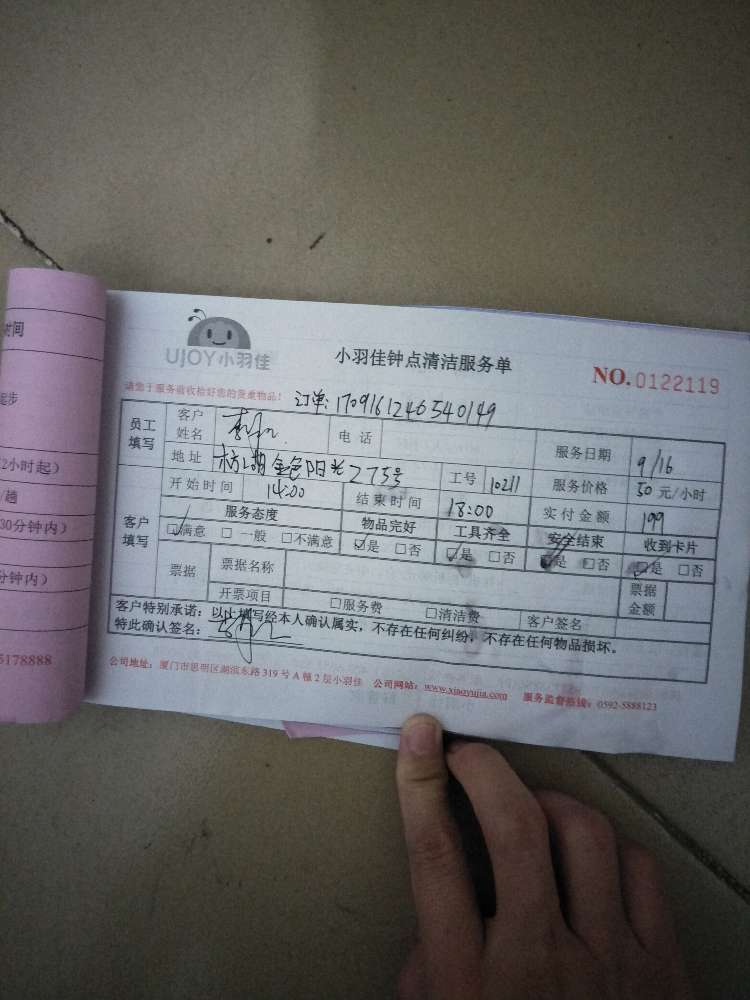 UJOY小羽佳
小羽佳钟点清洁服务单
NO.0122119
请您于服务前收拾好您的贵重物品！ 订单:1709161246540149
员工填写 客户姓名 电 话 服务日期 9/16
地 址 金色阳光275号 工号 10211 服务价格 50 元/小时
客户填写 开始时间 14:00 结束时间 18:00 实付金额 199
服务态度 物品完好 工具齐全 安全结束 收到卡片
☑满意 □ 一般 □不满意 ☑是 □否 ☑是 □否 ☑是 □否 ☑是 □否
票据 票据名称 票据金额
开票项目 □服务费 □清洁费 客户签名
客户特别承诺：以上填写经本人确认属实，不存在任何纠纷，不存在任何物品损坏。
特此确认签名：
公司地址：厦门市思明区湖滨东路 319 号 A 幢 2 层小羽佳 公司网站：www.xiaoyujia.com 服务监督热线：0592-5888123
时间
起步
2小时起）
/趟
30分钟内）
分钟内）
5178888